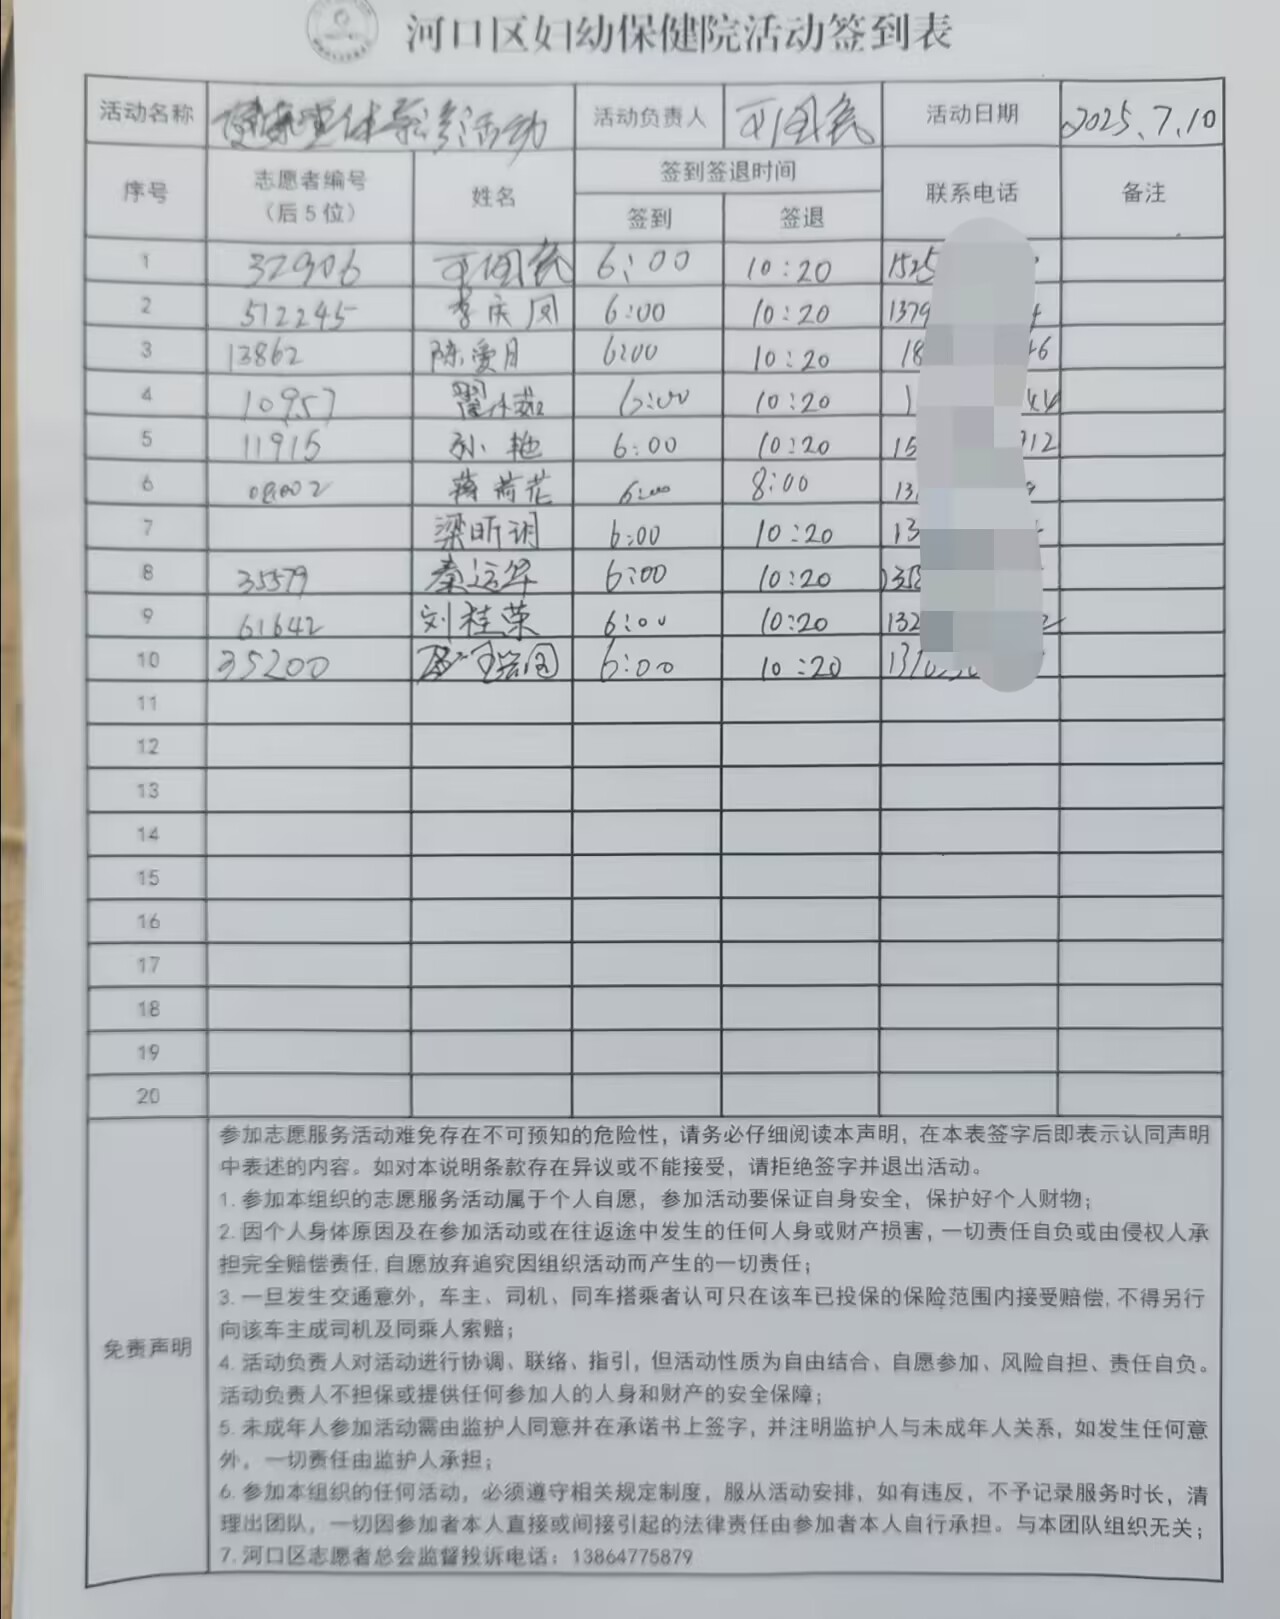 河口区妇幼保健院活动签到表
活动名称 活动 活动负责人 活动日期 2025.7.10
序号 志愿者编号（后5位） 姓名 签到签退时间 联系电话 备注
签到 签退
1 32906 6:00 10:20 1525
2 512245 李庆凤 6:00 10:20 1379 4
3 13862 陈爱月 6:00 10:20 18 46
4 10957 翟 6:00 10:20 1 44
5 11915 孙艳 6:00 10:20 15 912
6 08002 蒋荷花 6:00 8:00 13
7 梁昕玥 6:00 10:20 13
8 35579 秦运华 6:00 10:20 1358
9 61642 刘桂荣 6:00 10:20 132 2
10 35200 6:00 10:20
11
12
13
14
15
16
17
18
19
20
免责声明
参加志愿服务活动难免存在不可预知的危险性，请务必仔细阅读本声明，在本表签字后即表示认同声明
中表述的内容。如对本说明条款存在异议或不能接受，请拒绝签字并退出活动。
1. 参加本组织的志愿服务活动属于个人自愿，参加活动要保证自身安全，保护好个人财物；
2. 因个人身体原因及在参加活动或在往返途中发生的任何人身或财产损害，一切责任自负或由侵权人承
担完全赔偿责任,自愿放弃追究因组织活动而产生的一切责任；
3. 一旦发生交通意外，车主、司机、同车搭乘者认可只在该车已投保的保险范围内接受赔偿,不得另行
向该车主成司机及同乘人索赔；
4. 活动负责人对活动进行协调、联络、指引，但活动性质为自由结合、自愿参加、风险自担、责任自负。
活动负责人不担保或提供任何参加人的人身和财产的安全保障；
5. 未成年人参加活动需由监护人同意并在承诺书上签字，并注明监护人与未成年人关系，如发生任何意
外，一切责任由监护人承担；
6. 参加本组织的任何活动，必须遵守相关规定制度，服从活动安排，如有违反，不予记录服务时长，清
理出团队，一切因参加者本人直接或间接引起的法律责任由参加者本人自行承担。与本团队组织无关；
7. 河口区志愿者总会监督投诉电话：13864775879